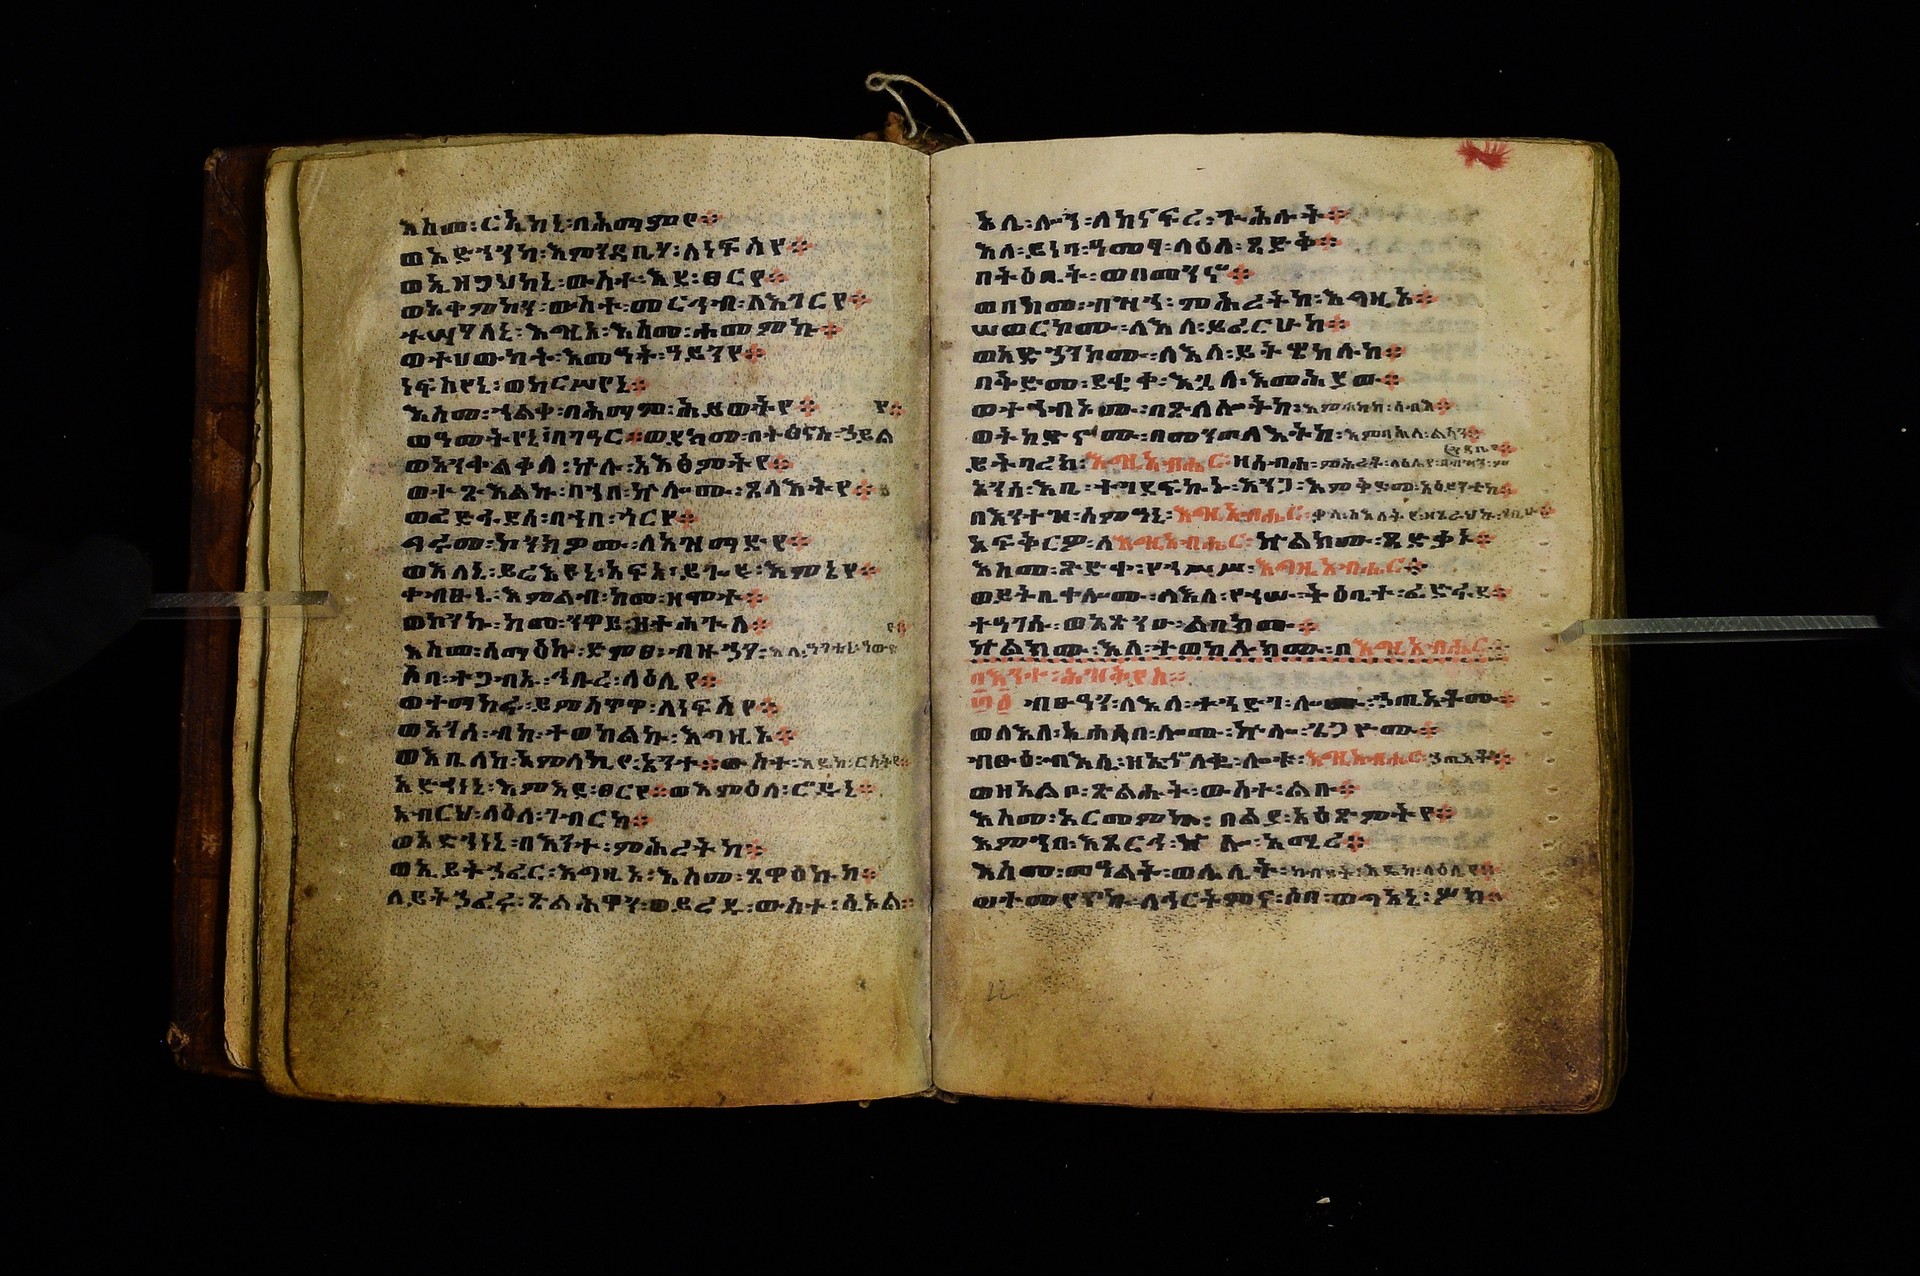 እስመ፡ርኢከኒ፡በሕማምየ።
ወአድኀንካ፡እምንዳቤሃ፡ለነፍስየ።
ወኢዘጋህከኒ፡ውስተ፡እደ፡ፀርየ።
ወአቀምኮን፡ውስተ፡መርኅብ፡ለእገርየ።
ተሣሃለኒ፡እግዚኦ፡እስመ፡ሐመምኩ።
ወተሀውከት፡እመዓት፡ዓይንየ።
ነፍስየኒ፡ወከርሥየኒ።
እስመ፡ኀልቀ፡በሕማም፡ሕይወትየ። የ።
ወዓመትየኒ፡በገዓር።ወደክመ፡በተፅናስ፡ኃይል
ወአንቀልቀለ፡ኵሉ፡አእፅምትየ።
ወተጽእልኩ፡በኀበ፡ኵሎሙ፡ጸላእትየ።
ወፈድፋደሰ፡በኀበ፡ጎርየ።
ግሩመ፡ኮንክዎሙ፡ለአዝማድየ።
ወእለኒ፡ይሬእዩኒ፡አፍአ፡ይጐዩ፡እምኔየ።
እምልብ፡ከመ፡ዘሞተ።
ወኮንኩ፡ከመ፡ንዋይ፡ዘተሐጕለ። የ።
እስመ፡ሰማዕኩ፡ድምፀ፡ብዙኃን፡እለ፡
ሶበ፡ተጋብኡ፡ኅቡረ፡ላዕሌየ።
ወተማከሩ፡ይምስጥዋ፡ለነፍስየ።
ወአንሰ፡ብከ፡ተወከልኩ፡እግዚኦ።
ወእቤለከ፡አምላኪየ፡አንተ።ውስተ፡እዴከ፡ርስትየ።
አድኅነኒ፡እምእደ፡ፀርየ።ወእምዕለ፡ሮዱኒ።
አብርህ፡ላዕለ፡ገብርከ።
ወአድኅነኒ፡በእንተ፡ምሕረትከ።
ወኢይትኃፈር፡እግዚኦ፡እስመ፡ጸዋዕኩከ።
ለይትኃፈሩ፡ጽልሕዋን፡ወይረዱ፡ውስተ፡ሲኦል።
አሌሎን፡ለከናፍረ፡ጕሕሉት።
እለ፡ይነባ፡ዓመፃ፡ላዕለ፡ጻድቅ።
በትዕቢት፡ወበመንኖ።
ወበከመ፡ብዝኀ፡ምሕረትከ፡እግዚኦ።
ሠወርኮሙ፡ለእለ፡ይፈርሁከ።
ወአድኃንኮሙ፡ለእለ፡ይትዌከሉከ።
በቅድመ፡ደቂቀ፡እጓለ፡እመሕያው።
ወተኀብኦሙ፡በጽላሎትከ፡እምሀከከ፡ሰብእ።
ወትከድኖሙ፡በመንጦላእትከ፡እምባሕለ፡ልሳን።
ይትባረክ፡እግዚአብሔር፡ዘሰብሐ፡ምሕረቶ፡ላዕሌየ፡
አንሰ፡እቤ፡ተገደፍኩኑ፡እንጋ፡እምቅድመ፡አዕይንቲከ።
በእንተዝ፡ሰምዓኒ፡እግዚአብሔር፡ቃለ፡ስእለትየ፡ዘጸራህኩ፡ኀቤሁ።
አፍቅርዎ፡ለእግዚአብሔር፡ኵልክሙ፡ጻድቃኑ።
እስመ፡ጽድቀ፡የኀሥሥ፡እግዚአብሔር።
ወይትቤቀሎሙ፡ለእለ፡የኀሡ፡ትዕቢተ፡ፈድፋደ።
ተዓገሱ፡ወአጽንዑ፡ልበክሙ።
ኵልክሙ፡እለ፡ተወከሉክሙ፡በእግዚአብሔር።
በእንተ፡ሕዝቅያስ።
፴፩ ብፁዓን፡ለእለ፡ተኀድገ፡ሎሙ፡ኃጢአቶሙ።
ወለእለ፡ኢሐሰበ፡ሎሙ፡ኵሎ፡ጌጋዮሙ።
ብፁዕ፡ብእሲ፡ዘኢኆለቈ፡ሎቱ፡እግዚአብሔር፡ኃጢአቶ።
ወዘአልቦ፡ጽልሑት፡ውስተ፡ልቡ።
እስመ፡አርመምኩ፡በልያ፡አዕፅምትየ።
እምኀበ፡አጸርኅ፡ኵሎ፡አሚረ።
እስመ፡መዓልት፡ወሌሊት፡ከብደት፡እዴከ፡ላዕሌየ።
ወተመየጥኩ፡ለኀርትምና፡ሶበ፡ወግአኒ፡ሦክ።
22